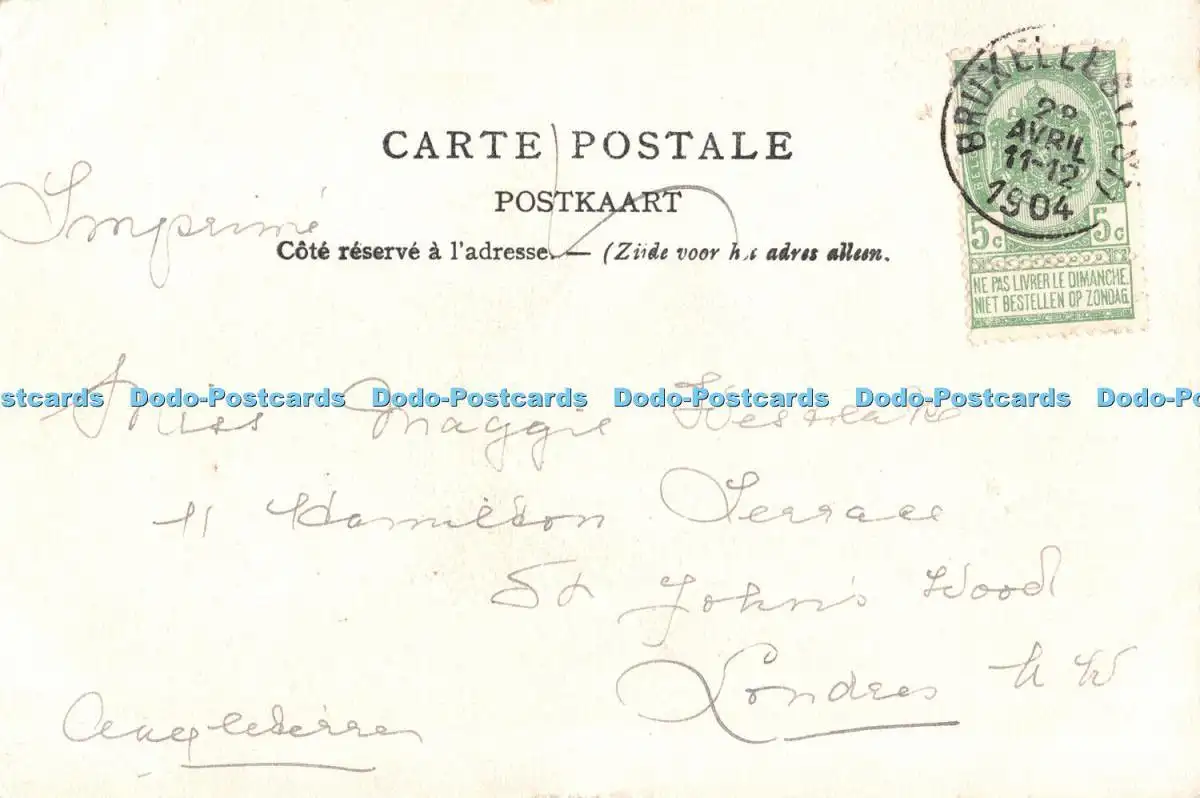 CARTE POSTALE
POSTKAART
Imprimé
Côté réservé à l'adresse. — (Zijde voor het adres alleen.
BRUXELLES
28
AVRIL
11-12
1904
5c 5c
NE PAS LIVRER LE DIMANCHE.
NIET BESTELLEN OP ZONDAG
stcards Dodo-Postcards Dodo-Postcards Dodo-Postcards Dodo-Postcards Dodo-Po
Miss Maggie Westlake
11 Hamilton Terrace
St John's Wood
Londres N W
Angleterre